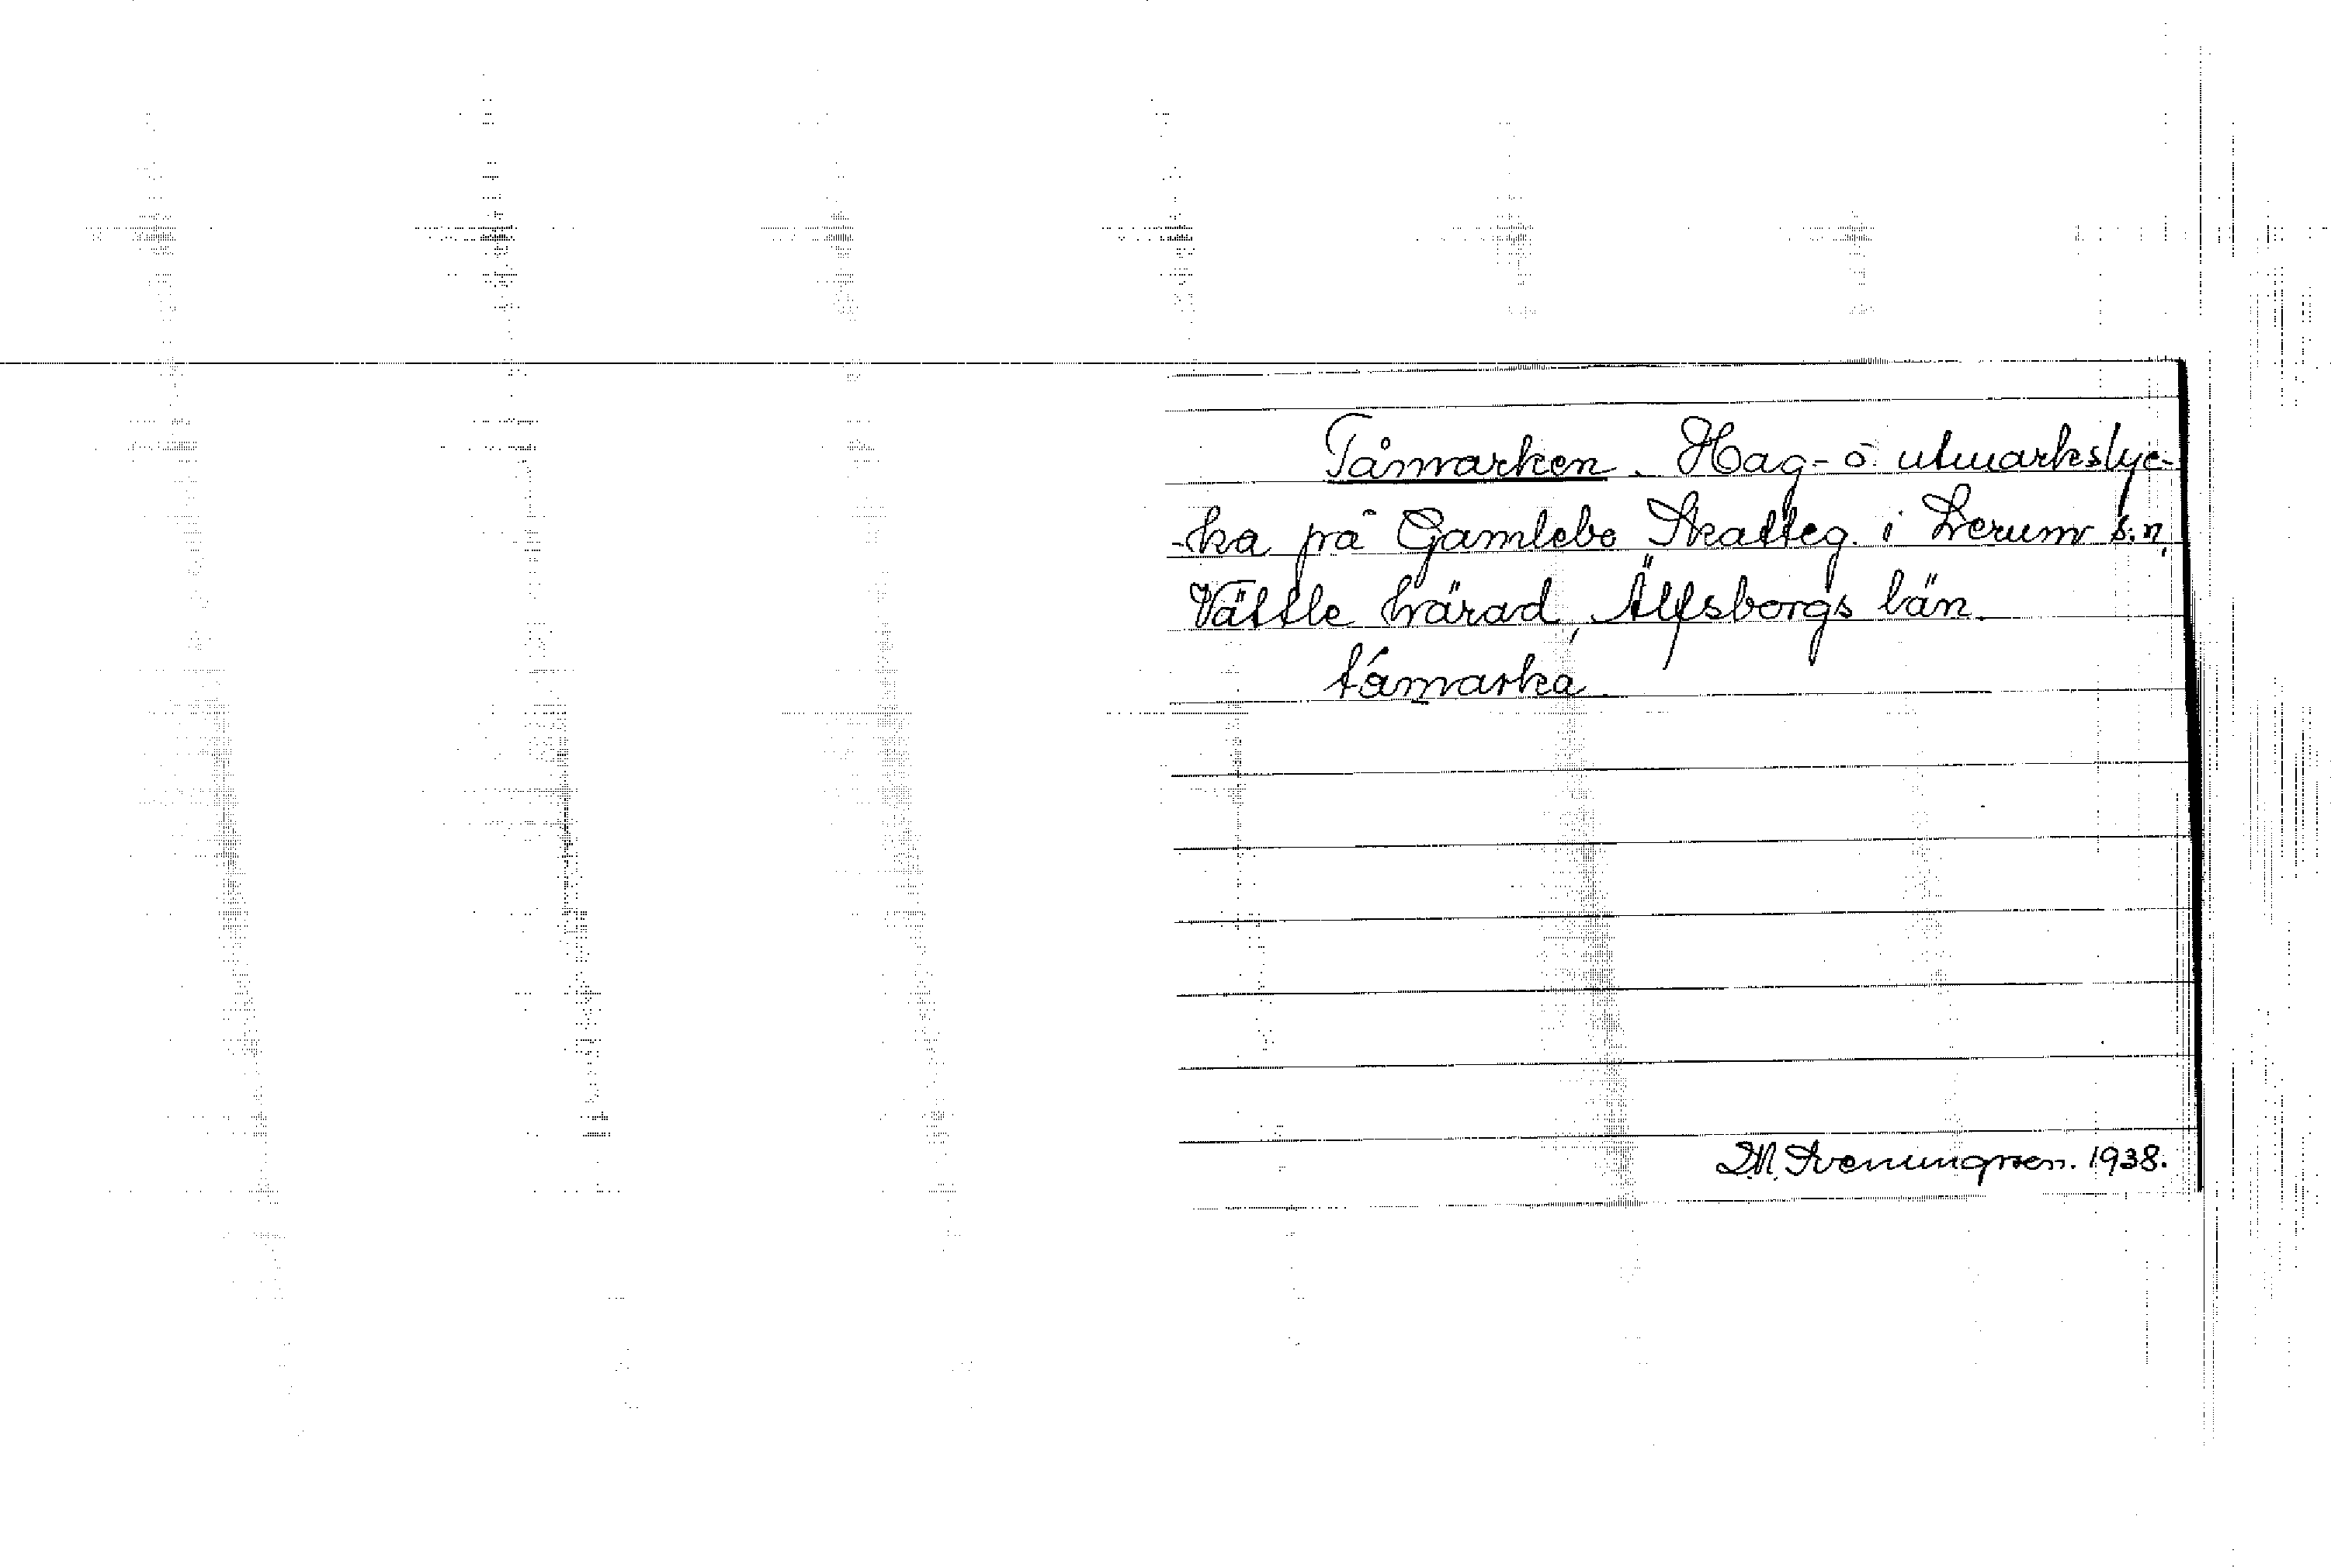 Tåmarken. Hag- o. utmarkslyc-
-ka på Gamlebo Skatteg. i Lerum s:n,
Vättle härad, Älfsborgs län.
támarka
D.M. Sveningsson. 1938.